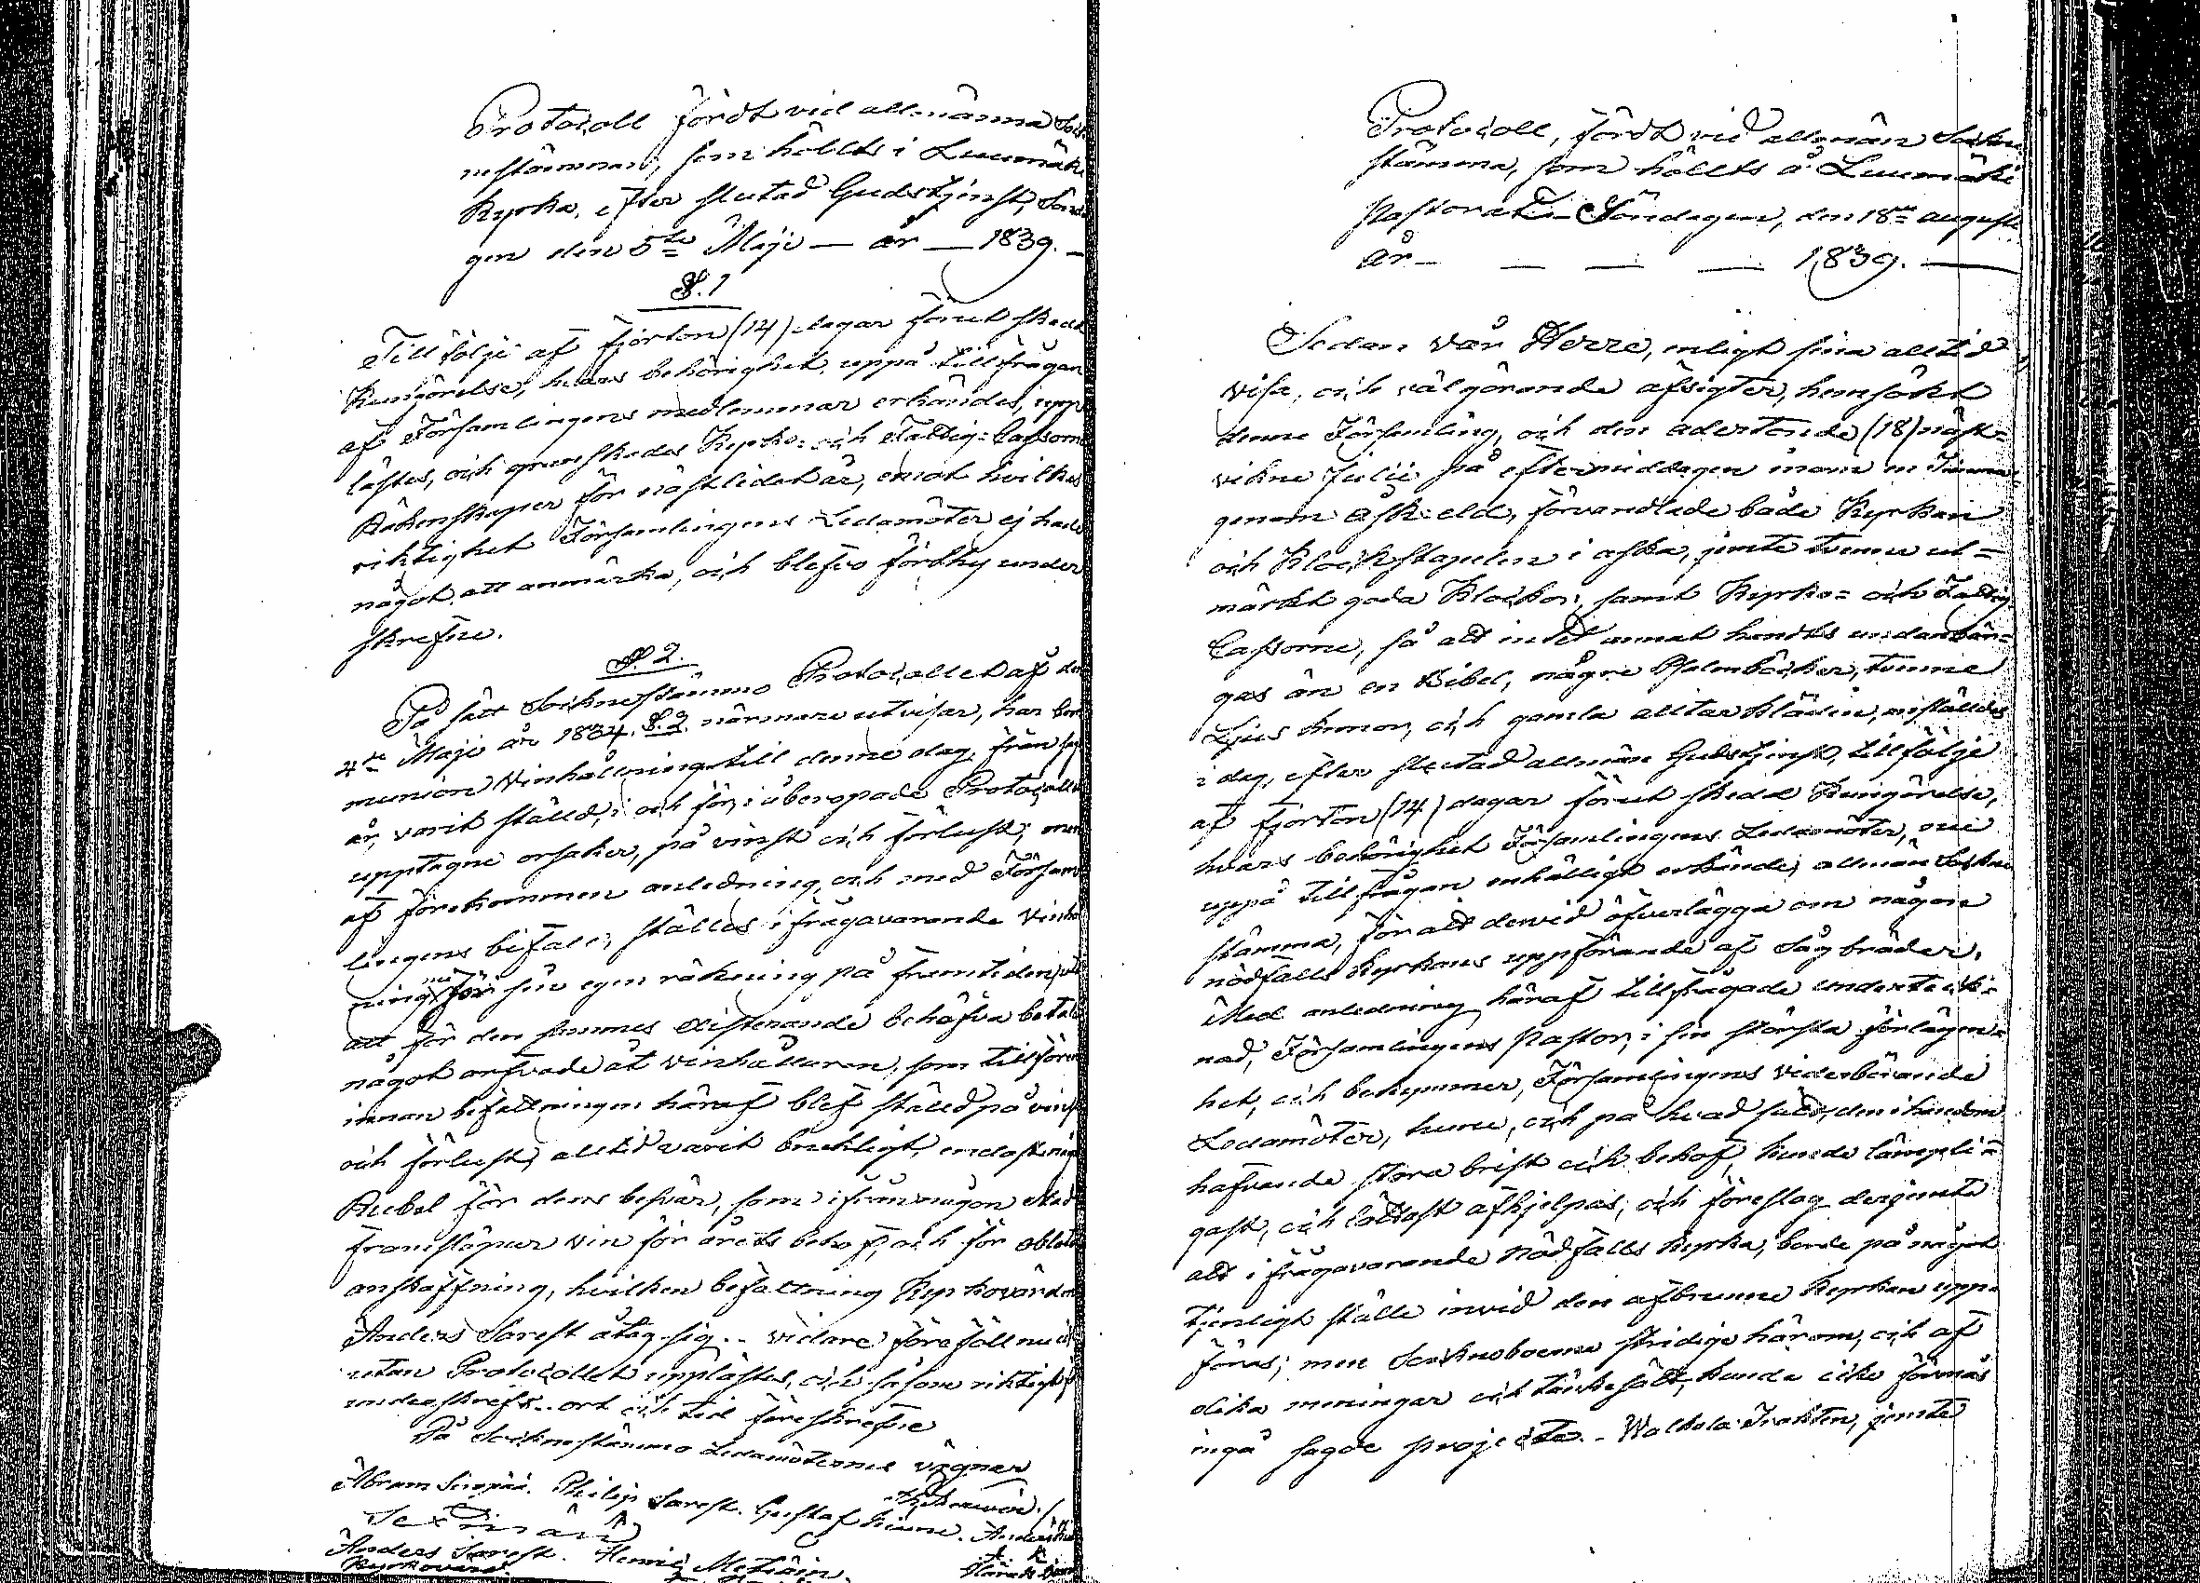 Protocoll fördt vid allmänna Sock
nestämman, som hölls i Luumäki
Kyrka, efter slutad Gudstjenst, Sönda
gen den 5te Maji — år — 1839. —
§. 1
Till följe af fjorton (14) dagar förut skedd
Kungörelse, hvars behörighet, uppå tillfrågan
af Församlingens medlemmar erkändes, upp
lästes, och granskades Kyrko- och Fattig-Cassorne
Räkenskaper för nästlidet år, emot hvilkas
riktighet Församlingens Ledamöter ej hade
något att anmärka, och blefvo förthy under
skrefne.
§. 2.
På sätt Socknestämmo Protocollet af den
4de Maji år 1834. §. 2. närmare utvisar, har Com
munion Vinhållning till denne dag, från sagde
år, varit ställd, och för, i åberopade Protocoll
upptagne orsaker, på vinst och förlust; men
af förekommen anledning, och med Försam
lingens bifall, ställes i frågavarande Vinhåll
ning nu för sin egen räkning på framtiden, utan
att för den summes existerande behöfva betala
något arfvode åt vinhållaren, som tillförne
innan befattningen häraf blef ställd på vinst
och förlust, alltid varit brukligt, endast nio
Rubel för dens besvär, som ifrån någon Stad
framskaffar vin för årets behof, och för oblat
anskaffning, hvilken befattning Kyrkovärden
Anders Sarest åtog sig. – Vidare föreföll nu ej
utan Protocollet upplästes, och såsom riktigt
underskrefs. ort och tid föreskrefne
På Socknestämmo Ledamöternes vägnar
Abram Sinpää. Philip Sarest. Gustaf Kinnu. Anders
Sexman
Anders Sarest. Henric Metiäin.
Kyrkovärd.
Protocoll, fördt vid allmän Sockne
stämma, som hölls å Luumäki
Pastorat Söndagen, den 18de Augusti
år — — — — 1839. —
Sedan vår Herre, enligt sina alltid
visa, och välgörande afsigter, hemsökt
denne Församling, och den adertonde (18) näst-
vikne Julii på eftermiddagen inom en Timma
genom åsk-eld, förvandlade både Kyrkan
och Klockstapeln i aska, jemte tvenne ut-
märkt goda Klockor, samt Kyrko- och Fattig
Cassorne, så att intet annat hendes undanbär-
gas än en Bibel, några Psalmböcker, tvenne
Ljus kronor, och gamla alltarkläden, anställdes
i dag, efter slutad allmän Gudstjenst, till följe
af fjorton (14) dagar förut skedd Kungörelse,
hvars behörighet Församlingens Ledamöter, nu
uppå tillfrågan enhälligt erkände, allmän Sockne
stämma, för att dervid öfverlägga om någon
nödfalls Kyrkans uppförande af Sågbräder.
Med anledning häraf tillfrågade underteck-
nad, Församlingens Pastor, i sin största förlägen-
het, och bekymmer, Församlingens vederbörande
Ledamöter, huru, och på hvad sätt, den i händom
hafvande stora brist och behof, kunde lämpli-
gast, och lättast afhjelpas, och föreslog derjemte
att i frågavarande nödfalls Kyrka, borde på något
tjenligt ställe invid den afbrunne Kyrkan upp-
föras; men Sockneboerne stridige härom, och af
olika meningar och tänkesätt, kunde icke förmås
ingå sagde projecte. – Walkola Trakten, jemte